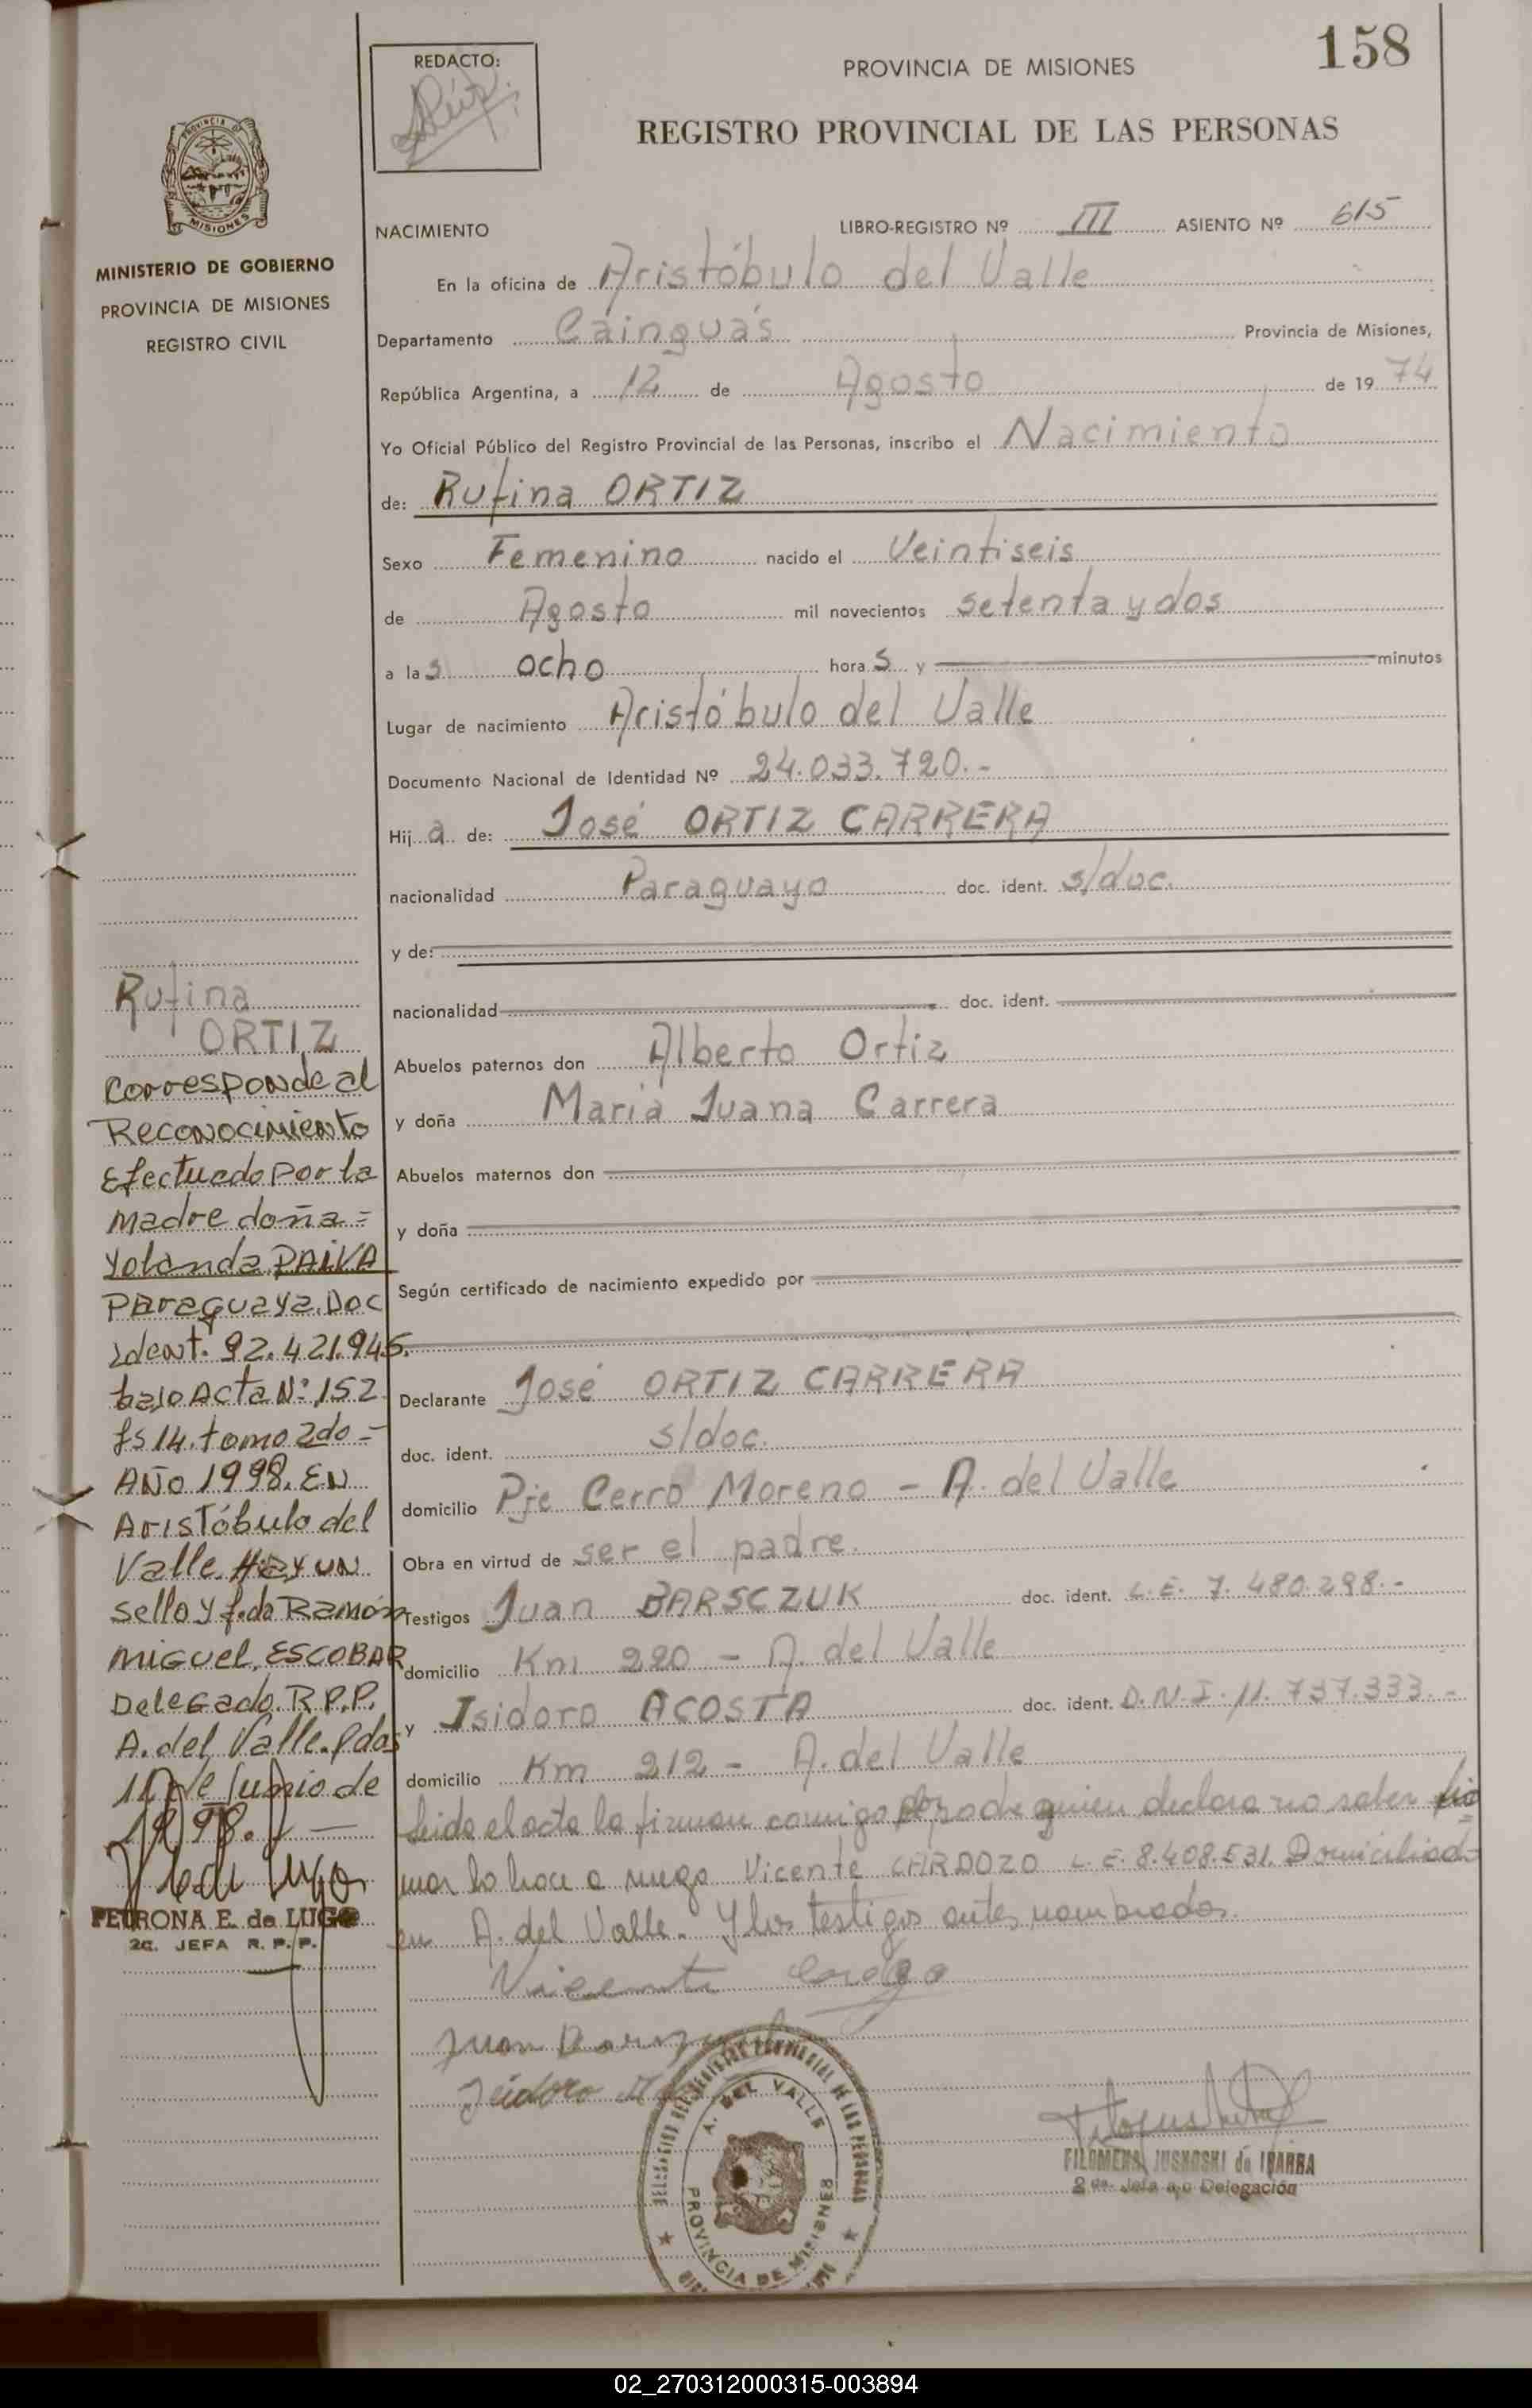 158
REDACTO:
PROVINCIA DE MISIONES
REGISTRO PROVINCIAL DE LAS PERSONAS
PROVINCIA
MISIONES
MINISTERIO DE GOBIERNO
PROVINCIA DE MISIONES
REGISTRO CIVIL
NACIMIENTO LIBRO-REGISTRO Nº III ASIENTO Nº 615
En la oficina de Aristóbulo del Valle
Departamento Cainguás Provincia de Misiones,
República Argentina, a 12 de Agosto de 19 74
Yo Oficial Público del Registro Provincial de las Personas, inscribo el Nacimiento
de: Rufina ORTIZ
Sexo Femenino nacido el Veintiseis
de Agosto mil novecientos setenta y dos
a las ocho horas y minutos
Lugar de nacimiento Aristóbulo del Valle
Documento Nacional de Identidad Nº 24.033.720.-
Hija de: José ORTIZ CARRERA
nacionalidad Paraguayo doc. ident. s/doc.
y de:
nacionalidad doc. ident.
Abuelos paternos don Alberto Ortiz
y doña Maria Juana Carrera
Abuelos maternos don
y doña
Según certificado de nacimiento expedido por
Declarante José ORTIZ CARRERA
doc. ident. s/doc.
domicilio Pje Cerro Moreno - A. del Valle
Obra en virtud de ser el padre.
Testigos Juan BARSCZUK doc. ident. L.E. 7.480.298.-
domicilio Km 220 - A. del Valle
y Isidoro ACOSTA doc. ident. D.N.I. 11.737.333.-
domicilio Km 212 - A. del Valle
leida el acta la firman conmigo por quien declara no saber fir
mar lo hace a ruego Vicente CARDOZO L.E. 8.408.531. Domiciliado
en A. del Valle. Y los testigos antes nombrados.
Vicente
Juan
Isidoro
Rufina
ORTIZ
Corresponde al
Reconocimiento
Efectuado por la
madre doña =
Yolanda PAIVA
Paraguaya. Doc
Ident. 92.421.945.
bajo Acta Nº 152
fs 14. tomo 2do -
AÑO 1998. EN
Aristóbulo del
Valle. Hay un
sello y fdo Ramón
Miguel, ESCOBAR
Delegado. R.P.P.
A. del Valle. Pdas
11 de Junio de
1998. -
PETRONA E. de LUGO
2a. JEFA R. P. P.
DELEGACION DEL REGISTRO PROVINCIAL DE LAS PERSONAS
A. DEL VALLE
PROVINCIA DE MISIONES
FILOMENA JUSKOSKI de IBARRA
2da. Jefa a/c Delegación
02_270312000315-003894